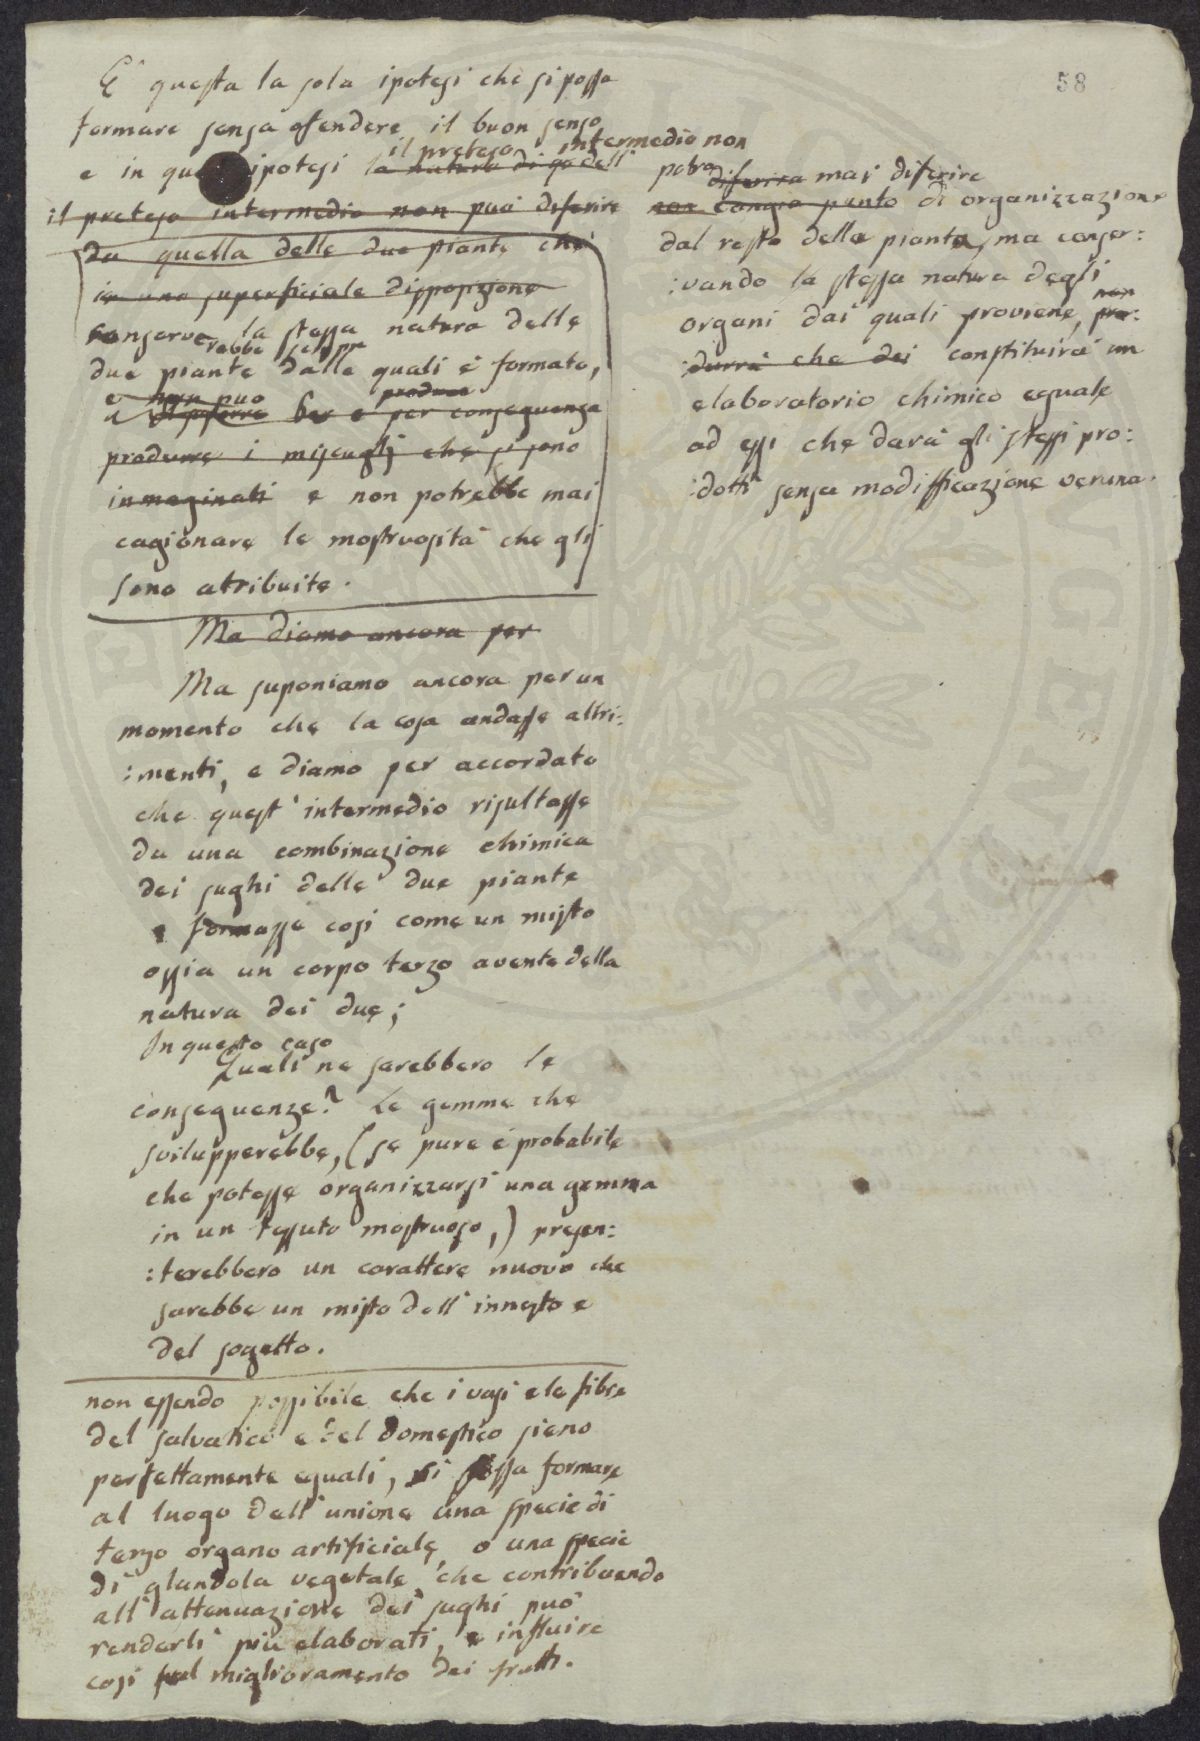 58
E' questa la sola ipotesi che si possa
formare senza ofendere il buon senso
il preteso intermedio non
e in ipotesi la natura di qo dell'
il preteso intermedio non può diferire
da quella delle due piante che
in una superficiale disposizione
conserve
rebbe sempre
la stessa natura delle
due piante dalle quali è formato,
e non può produce
per conseguenza
produrre i miscugli che si sono
inmaginati e non potrebbe mai
cagionare le mostruosità che gli
sono atribuite.
Ma diamo ancora per
Ma suponiamo ancora per un
momento che la cosa andasse altri:
:menti, e diamo per accordato
che quest'intermedio risultasse
da una combinazione chimica
dei sughi delle due piante
e formasse cosi come un misto
ossia un corpo terzo avente della
natura dei due;
In questo caso
Quali ne sarebbero le
conseguenze? Le gemme che
svilupperebbe, (se pure è probabile
che potesse organizzarsi una gemma
in un tessuto mostruoso,) presen:
:terebbero un carattere nuovo che
sarebbe un misto dell'innesto e
del sogetto.
non essendo possibile che i vasi e le fibre
del salvatico e del domestico sieno
perfettamente eguali, si possa formare
al luogo dell'unione una specie di
terzo organo artificiale, o una specie
di glandola vegetale, che contribuendo
all'attenuazione dei sughi può
renderli più elaborati, e influire
cosi sul miglioramento dei frutti.
potra diferira mai diferire
non cangia punto di organizzazione
dal resto della pianta, ma conser:
:vando la stessa natura degli
organi dai quali proviene, non pro:
:durrà che dei constituirà un
elaboratorio chimico eguale
ad essi che darà gli stessi pro:
:dotti senza modifficazione veruna.